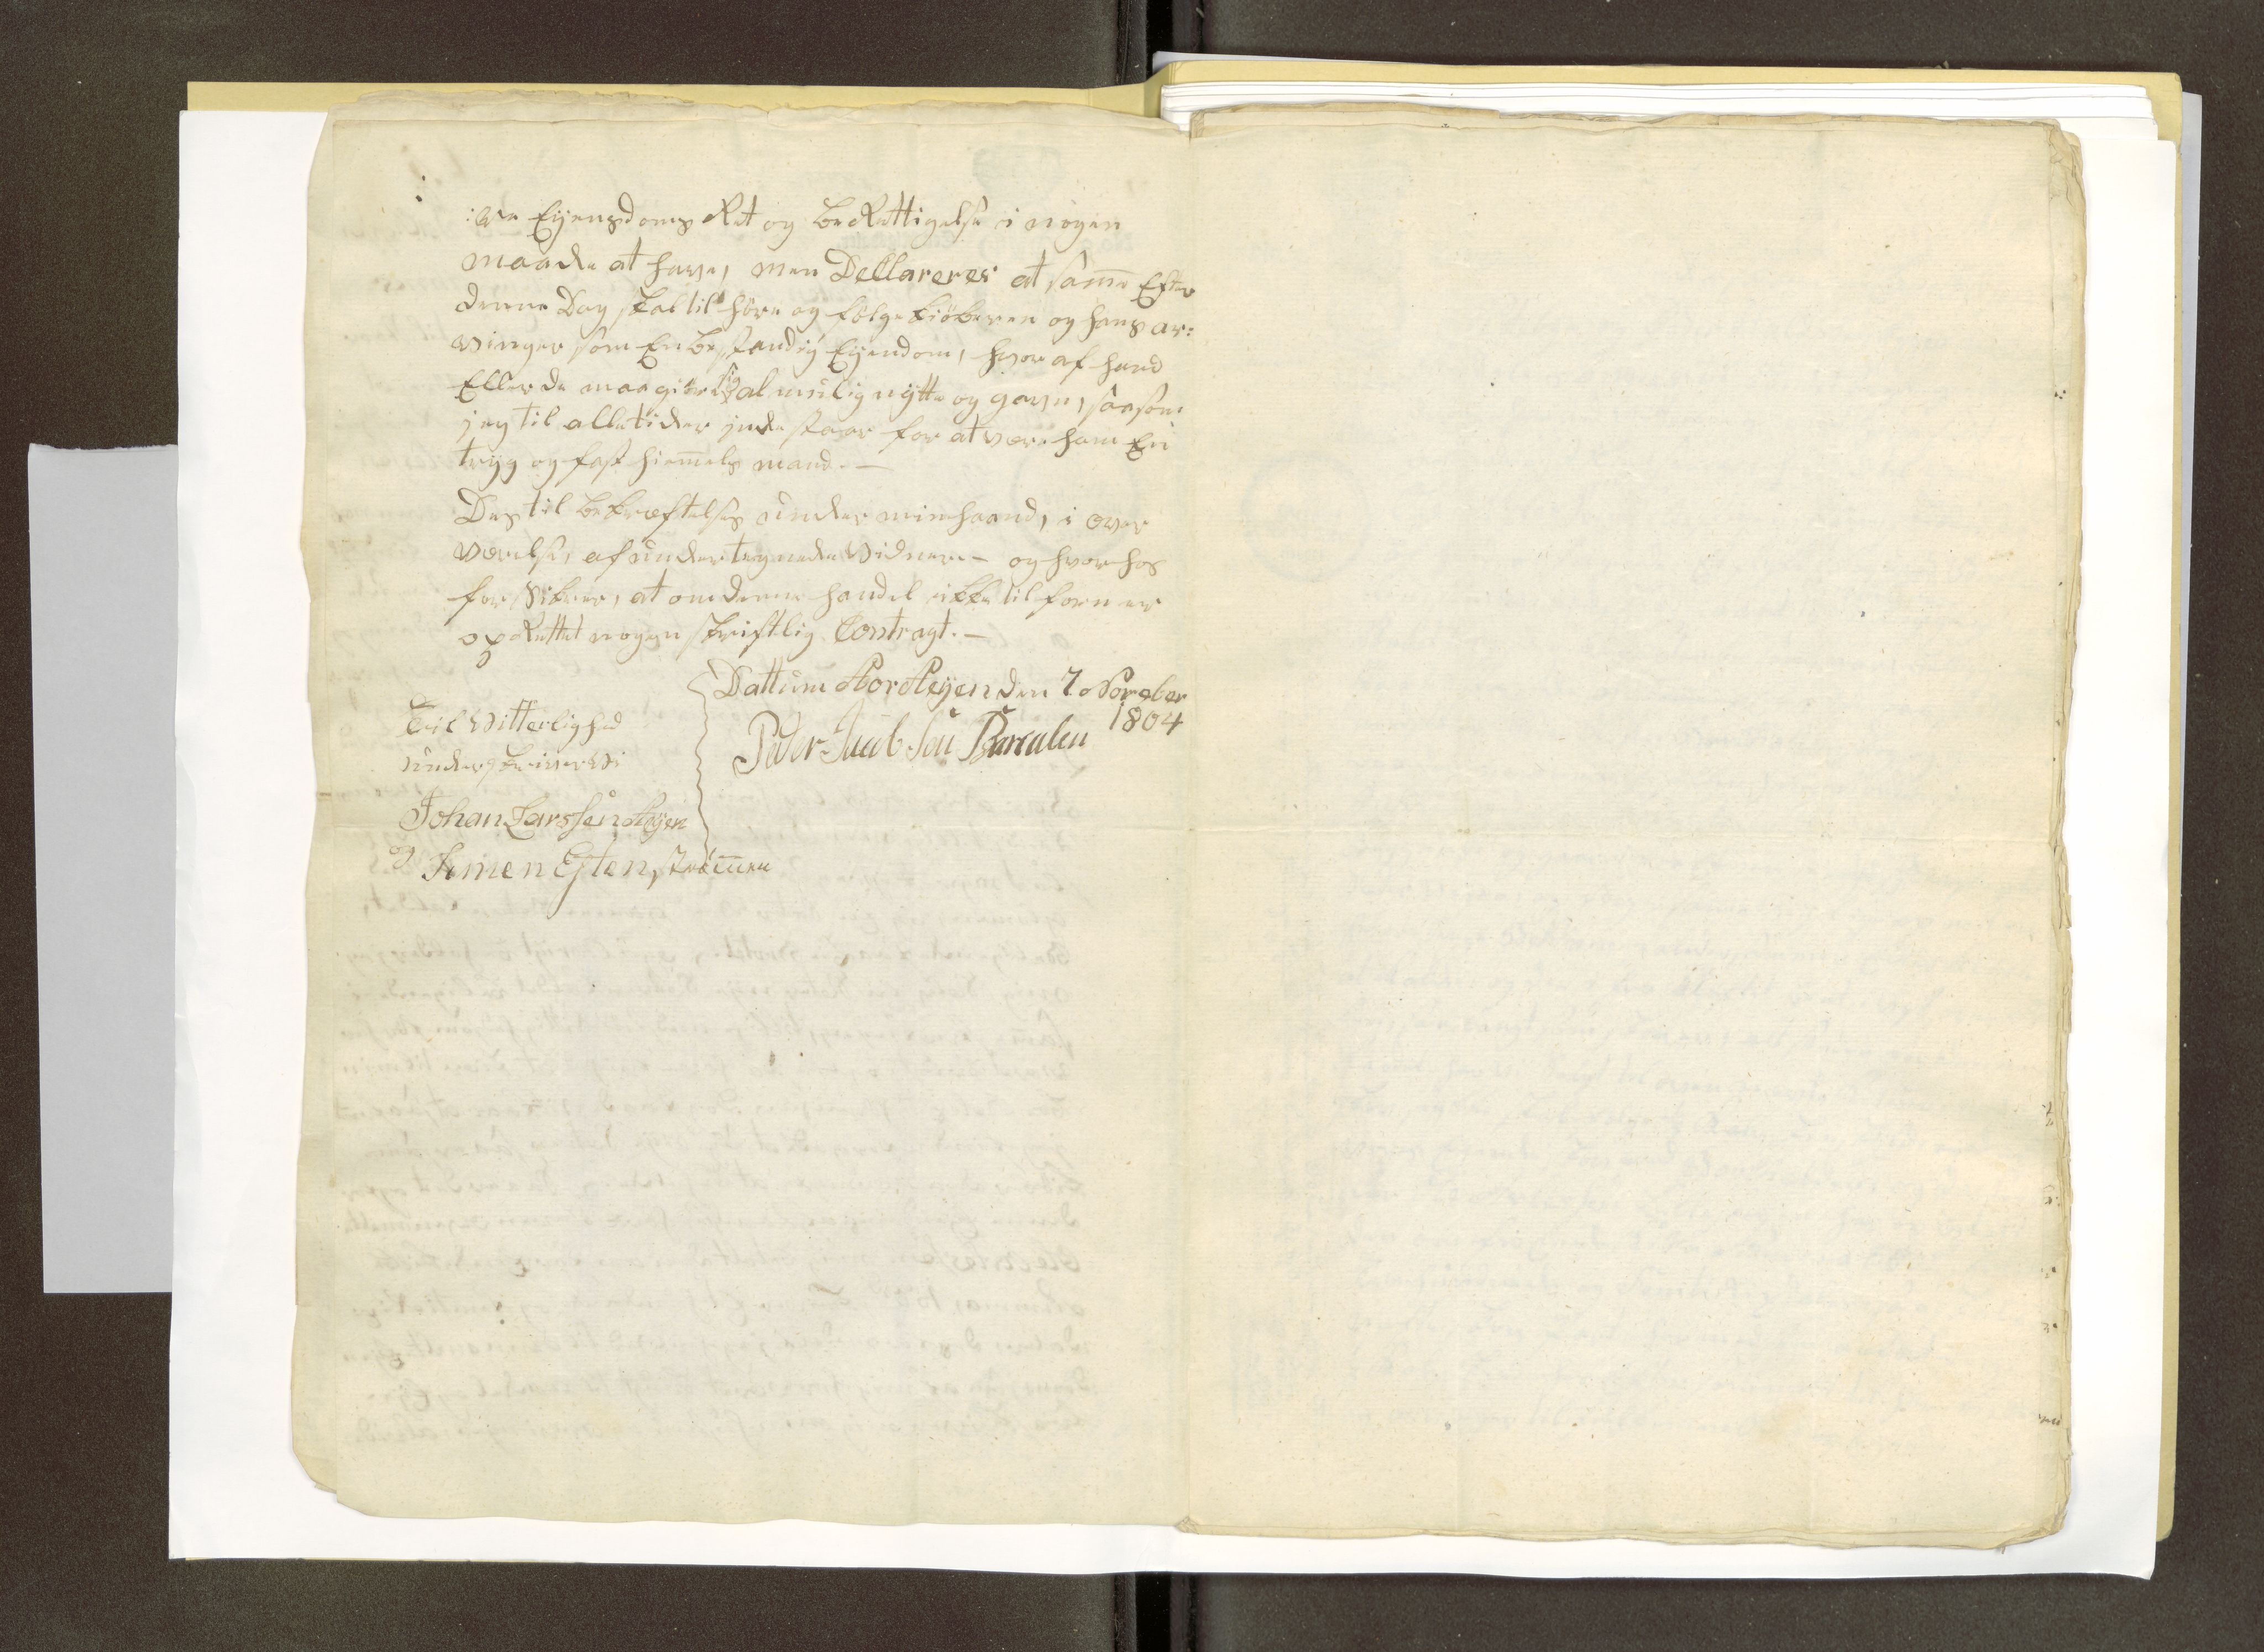 :dre Eyensdoms Ret og beRettigelse i nogen
maade at have, men Dellarerer at sam̅e Efter
denne Dag skal til höre og fölge kiöberen og hans ar:
vinger som En bestandig Eyendom, hvor af hand
Eller de maa giöre sig al mulig nytte og gavn, saasom
jeg til alle tider inde staar for at være ham En
tryg og fast hiem̅els mand. —
Des til bekræftelse under min haand, i over
værelse, af under tegnede Vidner. — og hvor hos
for Sikrer, at om denne handel ikke tilforn er
opRettet nogen skriftlig Contragt. —
Dattum Nordleyen den 7 November
1804
Til Vitterlighed
underskriver Vi
Peder Jacob Sen
Johan Larssen
og Simen Esten